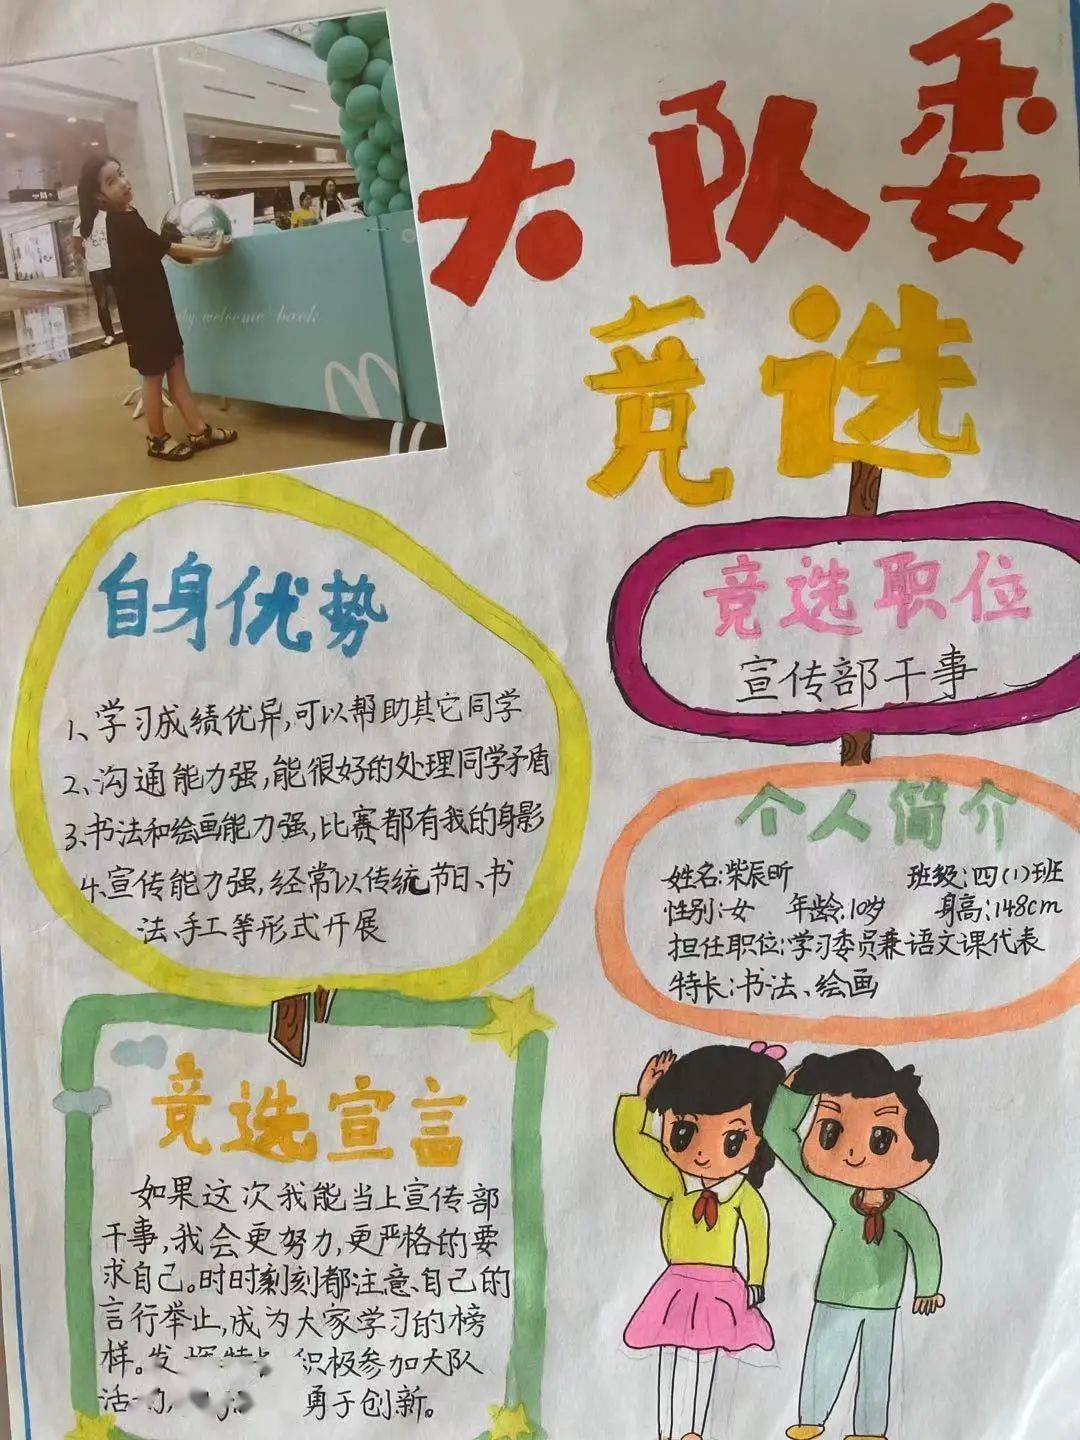 大队委
竞选
by welcome back
自身优势
1、学习成绩优异,可以帮助其它同学
2、沟通能力强,能很好的处理同学矛盾
3、书法和绘画能力强,比赛都有我的身影
4、宣传能力强,经常以传统节日、书
法、手工等形式开展
竞选职位
宣传部干事
个人简介
姓名:柴辰昕 班级:四(1)班
性别:女 年龄:10岁 身高:148cm
担任职位:学习委员兼语文课代表
特长:书法、绘画
竞选宣言
如果这次我能当上宣传部
干事,我会更努力,更严格的要
求自己。时时刻刻都注意自己的
言行举止,成为大家学习的榜
样。发 积极参加大队
活动, 勇于创新。